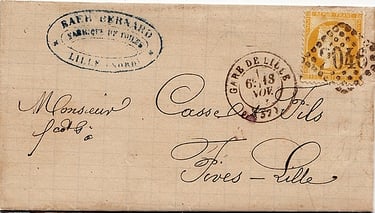 SAFE BERNARD
FABRIQUE DE TOILES
LILLE (NORD)
GARE DE LILLE
6E
18
NOV.
(57)
Monsieur
Casse & Fils
Fives-Lille